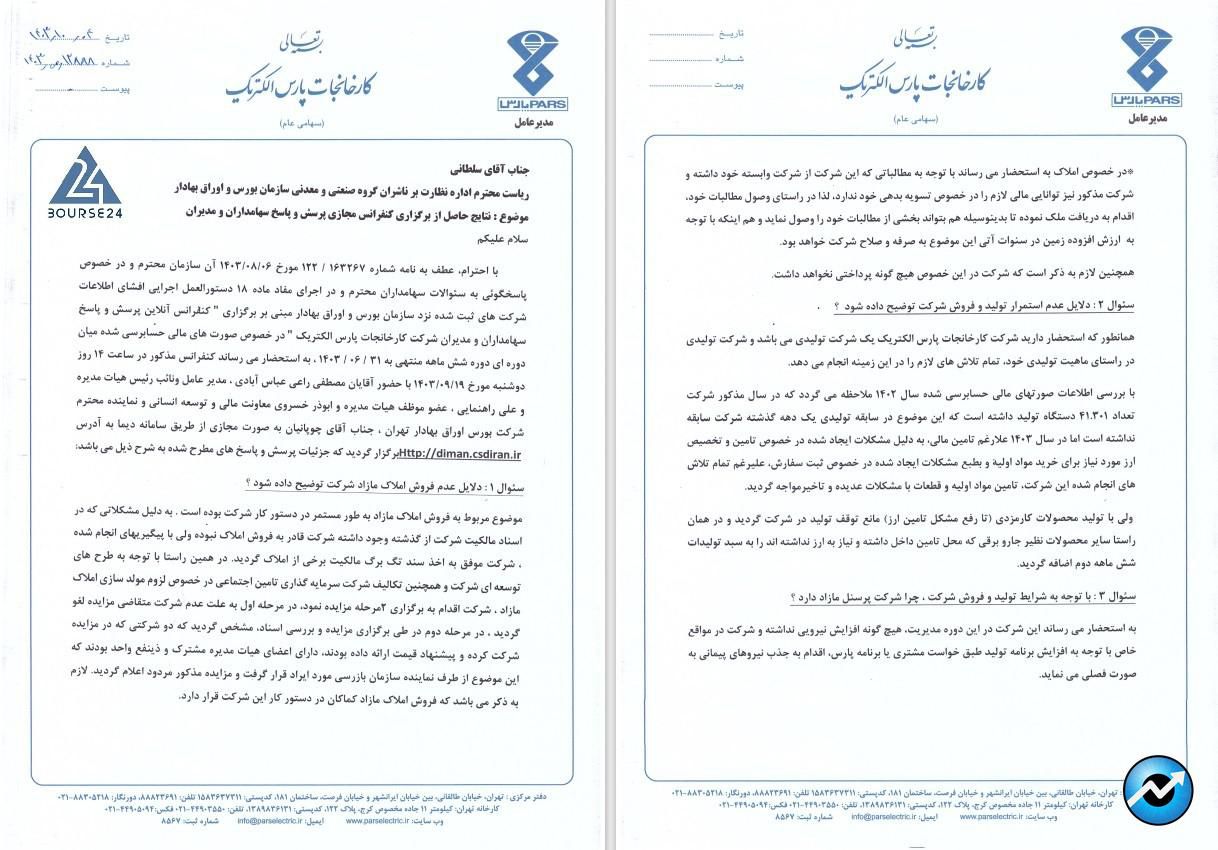 بسمه تعالی
کارخانجات پارس الکتریک
(سهامی عام)
تاریخ
شماره
پیوست
پارس PARS
مدیرعامل
BOURSE24
جناب آقای سلطانی
ریاست محترم اداره نظارت بر ناشران گروه صنعتی و معدنی سازمان بورس و اوراق بهادار
موضوع : نتایج حاصل از برگزاری کنفرانس مجازی پرسش و پاسخ سهامداران و مدیران
سلام علیکم
با احترام، عطف به نامه شماره ۱۶۳۲۶۷ / ۱۲۲ مورخ ۱۴۰۳/۰۸/۰۶ آن سازمان محترم و در خصوص
پاسخگوئی به سئوالات سهامداران محترم و در اجرای مفاد ماده ۱۸ دستورالعمل اجرایی افشای اطلاعات
شرکت های ثبت شده نزد سازمان بورس و اوراق بهادار مبنی بر برگزاری " کنفرانس آنلاین پرسش و پاسخ
سهامداران و مدیران شرکت کارخانجات پارس الکتریک " در خصوص صورت های مالی حسابرسی شده میان
دوره ای دوره شش ماهه منتهی به ۳۱ / ۰۶ / ۱۴۰۳ ، به استحضار می رساند کنفرانس مذکور در ساعت ۱۴ روز
دوشنبه مورخ ۱۴۰۳/۰۹/۱۹ با حضور آقایان مصطفی راعی عباس آبادی ، مدیر عامل ونائب رئیس هیات مدیره
و علی راهنمایی ، عضو موظف هیات مدیره و ابوذر خسروی معاونت مالی و توسعه انسانی و نماینده محترم
شرکت بورس اوراق بهادار تهران ، جناب آقای چوپانیان به صورت مجازی از طریق سامانه دیما به آدرس
Http://diman.csdiran.ir برگزار گردید که جزئیات پرسش و پاسخ های مطرح شده به شرح ذیل می باشد:
سئوال ۱ : دلایل عدم فروش املاک مازاد شرکت توضیح داده شود ؟
موضوع مربوط به فروش املاک مازاد به طور مستمر در دستور کار شرکت بوده است . به دلیل مشکلاتی که در
اسناد مالکیت شرکت از گذشته وجود داشته شرکت قادر به فروش املاک نبوده ولی با پیگیریهای انجام شده
، شرکت موفق به اخذ سند تگ برگ مالکیت برخی از املاک گردید. در همین راستا با توجه به طرح های
توسعه ای شرکت و همچنین تکالیف شرکت سرمایه گذاری تامین اجتماعی در خصوص لزوم مولد سازی املاک
مازاد ، شرکت اقدام به برگزاری ۲مرحله مزایده نمود، در مرحله اول به علت عدم شرکت متقاضی مزایده لغو
گردید ، در مرحله دوم در طی برگزاری مزایده و بررسی اسناد، مشخص گردید که دو شرکتی که در مزایده
شرکت کرده و پیشنهاد قیمت ارائه داده بودند، دارای اعضای هیات مدیره مشترک و ذینفع واحد بودند که
این موضوع از طرف نماینده سازمان بازرسی مورد ایراد قرار گرفت و مزایده مذکور مردود اعلام گردید. لازم
به ذکر می باشد که فروش املاک مازاد کماکان در دستور کار این شرکت قرار دارد.
دفتر مرکزی : تهران، خیابان طالقانی، بین خیابان ایرانشهر و خیابان فرصت، ساختمان ۱۸۱، کدپستی: ۱۵۸۳۶۳۷۳۱۱ تلفن: ۸۸۸۲۳۶۹۱، دورنگار: ۸۸۳۰۵۲۱۸-۰۲۱
کارخانه تهران: کیلومتر ۱۱ جاده مخصوص کرج، پلاک ۱۲۲، کدپستی: ۱۳۸۹۸۳۶۱۳۱، تلفن: ۴۴۹۰۳۵۵۰-۰۲۱ فکس:۴۴۹۰۵۰۹۴-۰۲۱
وب سایت: www.parselectric.com ایمیل: info@parselectric.com شماره ثبت: ۸۵۶۷
بسمه تعالی
کارخانجات پارس الکتریک
(سهامی عام)
تاریخ
شماره
پیوست
پارس PARS
مدیرعامل
*در خصوص املاک به استحضار می رساند با توجه به مطالباتی که این شرکت از شرکت وابسته خود داشته و
شرکت مذکور نیز توانایی مالی لازم را در خصوص تسویه بدهی خود ندارد، لذا در راستای وصول مطالبات خود،
اقدام به دریافت ملک نموده تا بدینوسیله هم بتواند بخشی از مطالبات خود را وصول نماید و هم اینکه با توجه
به ارزش افزوده زمین در سنوات آتی این موضوع به صرفه و صلاح شرکت خواهد بود.
همچنین لازم به ذکر است که شرکت در این خصوص هیچ گونه پرداختی نخواهد داشت.
سئوال ۲ : دلایل عدم استمرار تولید و فروش شرکت توضیح داده شود ؟
همانطور که استحضار دارید شرکت کارخانجات پارس الکتریک یک شرکت تولیدی می باشد و شرکت تولیدی
در راستای ماهیت تولیدی خود، تمام تلاش های لازم را در این زمینه انجام می دهد.
با بررسی اطلاعات صورتهای مالی حسابرسی شده سال ۱۴۰۲ ملاحظه می گردد که در سال مذکور شرکت
تعداد ۴۱.۳۰۱ دستگاه تولید داشته است که این موضوع در سابقه تولیدی یک دهه گذشته شرکت سابقه
نداشته است اما در سال ۱۴۰۳ علارغم تامین مالی، به دلیل مشکلات ایجاد شده در خصوص تامین و تخصیص
ارز مورد نیاز برای خرید مواد اولیه و بطبع مشکلات ایجاد شده در خصوص ثبت سفارش، علیرغم تمام تلاش
های انجام شده این شرکت، تامین مواد اولیه و قطعات با مشکلات عدیده و تاخیرمواجه گردید.
ولی با تولید محصولات کارمزدی (تا رفع مشکل تامین ارز) مانع توقف تولید در شرکت گردید و در همان
راستا سایر محصولات نظیر جارو برقی که محل تامین داخل داشته و نیاز به ارز نداشته اند را به سبد تولیدات
شش ماهه دوم اضافه گردید.
سئوال ۳ : با توجه به شرایط تولید و فروش شرکت ، چرا شرکت پرسنل مازاد دارد ؟
به استحضار می رساند این شرکت در این دوره مدیریت، هیچ گونه افزایش نیرویی نداشته و شرکت در مواقع
خاص با توجه به افزایش برنامه تولید طبق خواست مشتری یا برنامه پارس، اقدام به جذب نیروهای پیمانی به
صورت فصلی می نماید.
تهران، خیابان طالقانی، بین خیابان ایرانشهر و خیابان فرصت، ساختمان ۱۸۱، کدپستی: ۱۵۸۳۶۳۷۳۱۱ تلفن: ۸۸۸۲۳۶۹۱، دورنگار: ۸۸۳۰۵۲۱۸-۰۲۱
کارخانه تهران: کیلومتر ۱۱ جاده مخصوص کرج، پلاک ۱۲۲، کدپستی: ۱۳۸۹۸۳۶۱۳۱، تلفن: ۴۴۹۰۳۵۵۰-۰۲۱ فکس:۴۴۹۰۵۰۹۴-۰۲۱
وب سایت: www.parselectric.com ایمیل: info@parselectric.com شماره ثبت: ۸۵۶۷